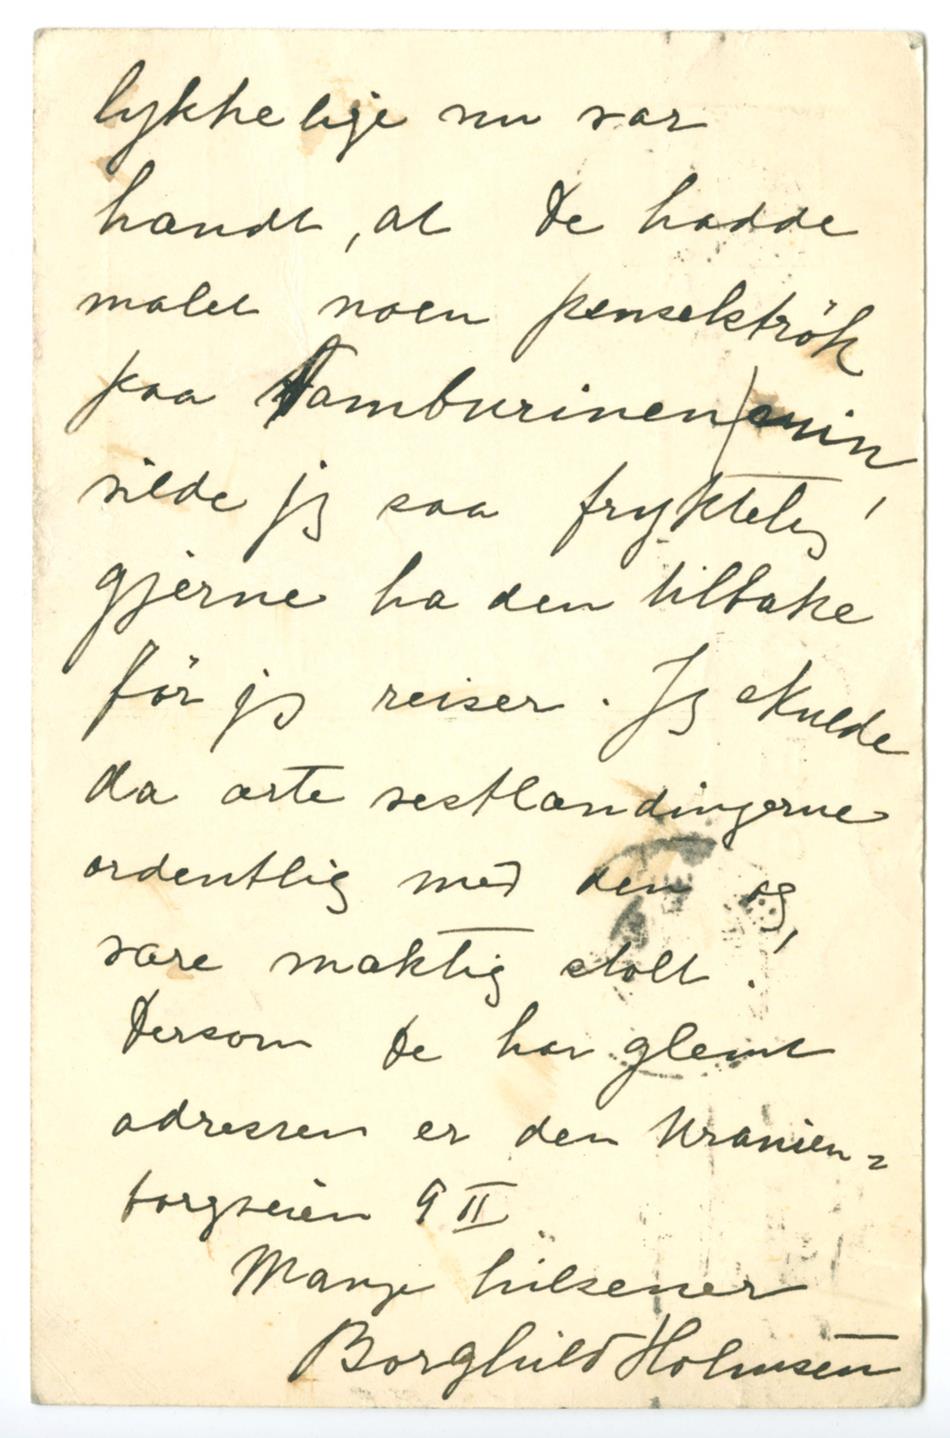 lykkelige nu var
hændt, at De hadde
malet noen penselströk
paa Tamburinen min
vilde jeg saa frykteleg
gjerne ha den tilbake
för jeg reiser. Jeg skulde
da ærte vestlændingerne
ordentlig med den og
være mæktig stolt!
Dersom De har glemt
adressen er den Uranien=
borgveien 9 II
Mange hilsener
Borghild Holmsen